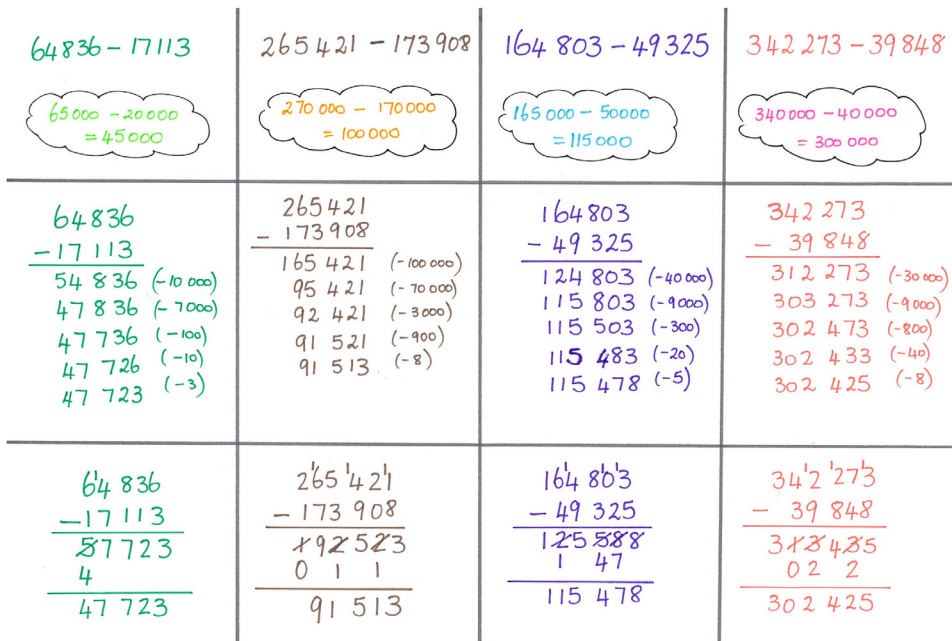 64836 – 17113
65000 – 20000
= 45000
265 421 – 173 908
270 000 – 170 000
= 100 000
164 803 – 49325
165 000 – 50000
= 115 000
342 273 – 39848
340000 – 40000
= 300 000
64836
– 17 113
54 836 (–10 000)
47 836 (– 7000)
47 736 (–100)
47 726 (–10)
47 723 (–3)
265 421
– 173 908
165 421 (–100 000)
95 421 (–70 000)
92 421 (–3000)
91 521 (–900)
91 513 (–8)
164 803
– 49 325
124 803 (–40000)
115 803 (–9000)
115 503 (–300)
115 483 (–20)
115 478 (–5)
342 273
– 39 848
312 273 (–30 000)
303 273 (–9000)
302 473 (–800)
302 433 (–40)
302 425 (–8)
6¹4 836
– 17 113
57 723
4
47 723
2¹65 ¹42¹1
– 173 908
192 523
0 1 1
91 513
16¹4 8¹0¹3
– 49 325
125 588
1 47
115 478
34¹2 ¹27¹3
– 39 848
313 435
02 2
302 425